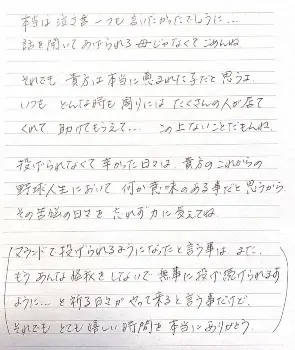 本当は泣き言一つも言いたかったでしょうに…
話を聞いてあげられる母じゃなくてごめんね
それでも 貴方は本当に恵まれた子だと思うよ
いつも どんな時も周りには たくさんの人が居て
くれて 助けてもらえて… この上ないことだもんね。
投げられなくて辛かった日々は、貴方のこれからの
野球人生において 何か意味のある事だと思うから
その苦悩の日々を 忘れず力に変えてね。
マウンドで投げられるようになったと言う事は、また、
もう あんな怪我をしないで 無事に投げ続けられます
ように…と祈る日々がやって来ると言う事だけど、
それでも とても嬉しい時間を本当にありがとう。